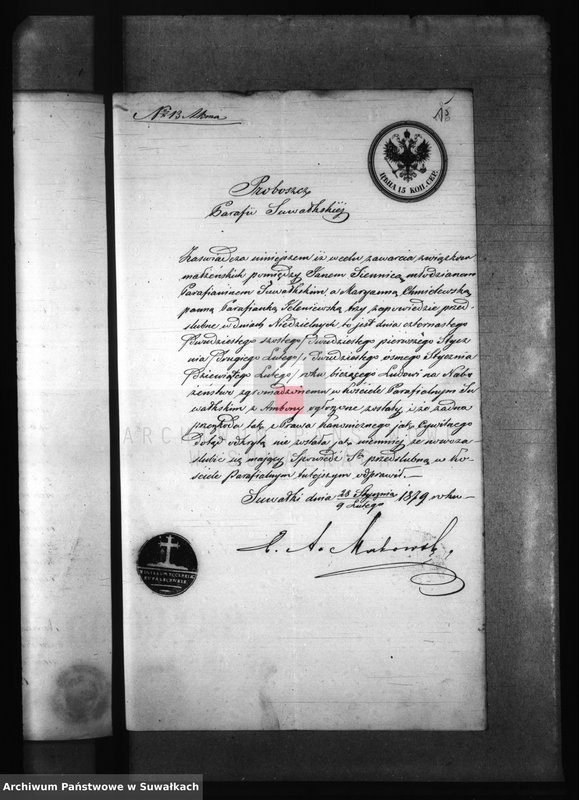 Nr 13 Alleg.
Proboszcz
Parafii Suwałkskiéj
Zaświadcza niniejszem iż w celu zawarcia związków
małżeńskich pomiędzy Janem Siennicą młodzianem
Parafianinem Suwałkskim, a Maryanną Chmielewską
panną Parafianką Jeleniewską trzy zapowiedzie przed-
ślubne w dniach Niedzielnych to jest dnia czternastego
/dwudziestego szóstego/ dwudziestego pierwszego Stycz-
nia /Drugiego Lutego/ i dwudziestego ósmego Stycznia
/Dziewiątego Lutego/ roku bieżącego Ludowi na Nabo-
żeństwo zgromadzonemu w kościele Parafialnym Su-
wałkskim z Ambony ogłoszone zostały, i że żadna
przeszkoda tak z Prawa kanonicznego jak Cywilnego
dotąd odkrytą nie została jak niemniej że nowoza-
ślubić się mający Spowiedź Stą przedślubną w Ko-
ściele Parafialnym tutejszym odprawił.—
Suwałki dnia 28 Stycznia / 9 Lutego 1879 roku
X. A.
ЦѢНА 15 КОП. СЕР.
Archiwum Państwowe w Suwałkach